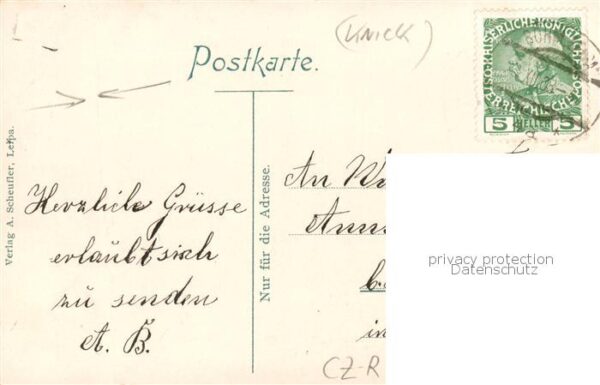 (KNICK)
Postkarte.
KAISERLICHE KÖNIGLICHE
ÖSTERREICHISCHE POST
5 HELLER 5
Verlag A. Scheufler, Leipa.
Herzliche Grüsse
erlaubt sich
zu senden
A. B.
Nur für die Adresse.
An
Ann
b.
in
CZ-R
privacy protection
Datenschutz